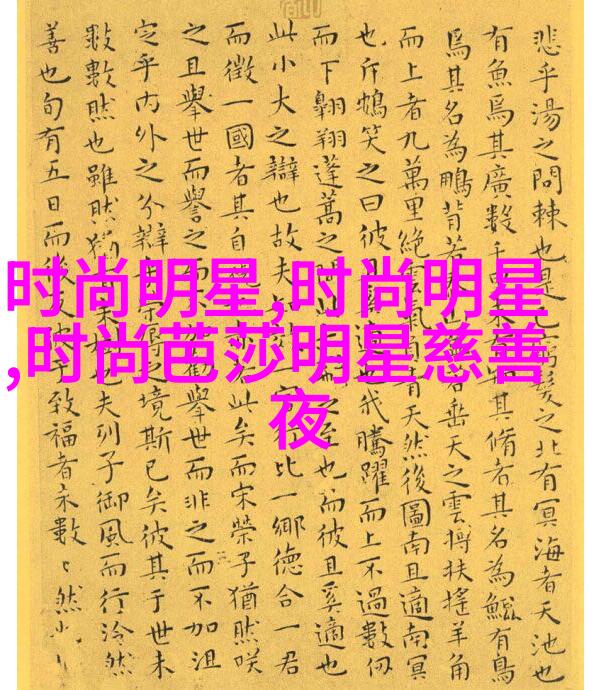 时尚明星,时尚明星
,时尚芭莎明星慈善
夜
悲乎湯之問棘也是已窮髮之北有冥海者天池也
有魚焉其廣數千其脩者其名為鯤有鳥
焉其名為鵬背若垂天之雲摶扶搖羊角
而上者九萬里絕雲氣負青天然後圖南且適南冥
也斥鴳笑之曰彼且適也我騰躍而上不過數仞
而下翱翔蓬蒿之間之至也而彼且奚適也
此小大之辯也故夫知一官行比一鄉德合一君
而徵一國者其自此矣而宋榮子猶然咲
之且舉世而譽之而不勸舉世而非之而不加沮
定乎內外之分辯乎之境斯已矣彼其于世未
數數然也雖然猶未也夫列子御風而行泠然
善也旬有五日而後反于致福者未數々然